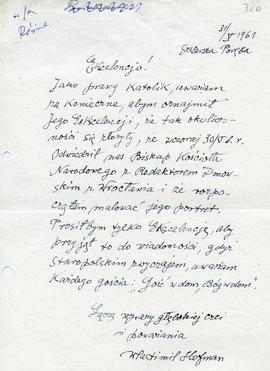 Różne
320
31/V 1961
Szklarska Poręba
Ekscelencjo!
Jako prawy Katolik, uważam
za konieczne, abym oznajmił
Jego Ekscelencję, że tak okolicz-
ności się złożyły, że wczoraj 30/V b.r.
Odwiedził nas Biskup Kościoła
Narodowego z Redaktorem
skim z Wrocławia i że rozpo-
cząłem malować jego portret.
Prosiłbym tylko Ekscelencję, aby
przyjął to do wiadomości, gdyż
Staropolskim zwyczajem, uważam
Każdego gościa: „Gość w dom Bóg w dom".
Łączę wyrazy głębokiej czci
i poważania
Wlastimil Hofman